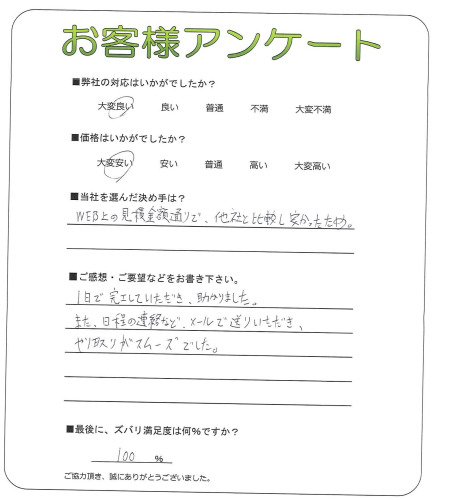 お客様アンケート
■弊社の対応はいかがでしたか？
大変良い 良い 普通 不満 大変不満
■価格はいかがでしたか？
大変安い 安い 普通 高い 大変高い
■当社を選んだ決め手は？
WEB上の見積金額通りで、他社と比較し安かったため。
■ご感想・ご要望などをお書き下さい。
1日で完工していただき、助かりました。
また、日程の連絡など、メールで送りいただき、
やり取りがスムーズでした。
■最後に、ズバリ満足度は何%ですか？
100 %
ご協力頂き、誠にありがとうございました。